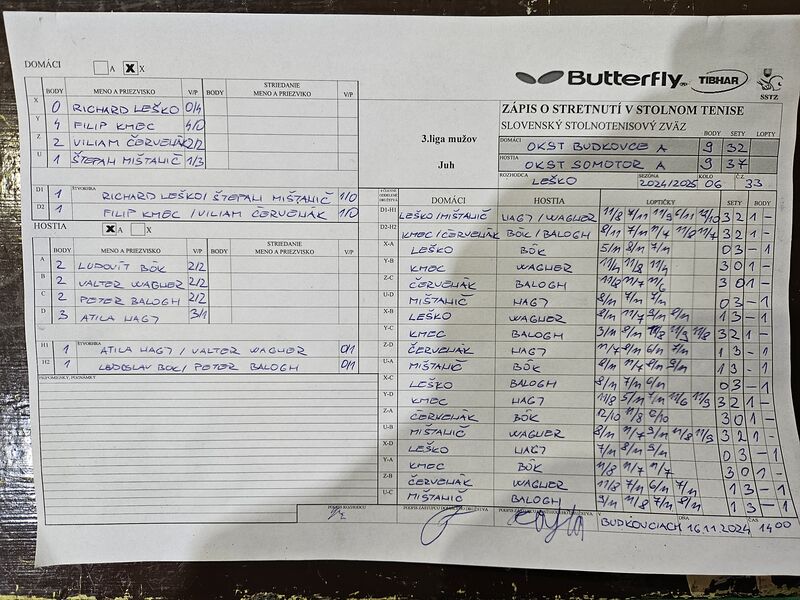 DOMÁCI A X X
BODY MENO A PRIEZVISKO V/P BODY STRIEDANIE MENO A PRIEZVIKO V/P
X 0 RICHARD LEŠKO 0/4
Y 4 FILIP KMEC 4/0
Z 2 VILIAM ČERVEŇÁK 2/2
U 1 ŠTEPAN MIŠTANIČ 1/3
D1 1 ŠTVORHRA RICHARD LEŠKO/ ŠTEPAN MIŠTANIČ 1/0
D2 1 FILIP KMEC /VILIAM ČERVEŇÁK 1/0
HOSTIA X A X
BODY MENO A PRIEZVISKO V/P BODY STRIEDANIE MENO A PRIEZVISKO V/P
A 2 ĽUDOVÍT BÖK 2/2
B 2 VALTER WAGNER 2/2
C 2 PETER BALOGH 2/2
D 3 ATILA HAGY 3/1
H1 1 ŠTVORHRA ATILA HAGY / VALTER WAGNER 0/1
H2 1 LADISLAV BÖK/ PETER BALOGH 0/1
PRIPOMIENKY, POZNÁMKY
Butterfly TIBHAR SSTZ
3.liga mužov
Juh
ZÁPIS O STRETNUTÍ V STOLNOM TENISE
SLOVENSKÝ STOLNOTENISOVÝ ZVÄZ BODY SETY LOPTY
DOMÁCI OKST BUDKOVCE A 9 32
HOSTIA OKST SOMOTOR A 9 37
ROZHODCA LEŠKO SEZÓNA 2024/2025 KOLO 06 Č.Z. 33
DOMÁCI HOSTIA LOPTIČKY SETY BODY
D1-H1 LEŠKO/MIŠTANIČ HAGY/WAGNER 3 2 1 -
D2-H2 KMEC/ČERVEŇÁK BÖK/BALOGH 3 2 1 -
X-A LEŠKO BÖK 5/11 8/11 7/11 0 3 - 1
Y-B KMEC WAGNER 11/4 11/8 11/4 3 0 1 -
Z-C ČERVEŇÁK BALOGH 11/8 11/7 11/6 3 0 1 -
U-D MIŠTANIČ HAGY 0 3 - 1
X-B LEŠKO WAGNER 1 3 - 1
Y-C KMEC BALOGH 3 2 1 -
Z-D ČERVEŇÁK HAGY 1 3 - 1
U-A MIŠTANIČ BÖK 1 3 - 1
X-C LEŠKO BALOGH 0 3 - 1
Y-D KMEC HAGY 11/8 5/11 7/11 11/6 11/9 3 2 1 -
Z-A ČERVEŇÁK BÖK 3 0 1 -
U-B MIŠTANIČ WAGNER 3 2 1 -
X-D LEŠKO HAGY 7/11 8/11 5/11 0 3 - 1
Y-A KMEC BÖK 11/8 11/7 11/7 3 0 1 -
Z-B ČERVEŇÁK WAGNER 11/8 7/11 6/11 7/11 1 3 - 1
U-C MIŠTANIČ BALOGH 9/11 11/8 7/11 8/11 1 3 - 1
PODPIS ROZHODCU PODPIS ZÁSTUPCU DOMÁCEHO DRUŽSTVA V BUDKOVCIACH DŇA 16.11.2024 ČAS 14 00